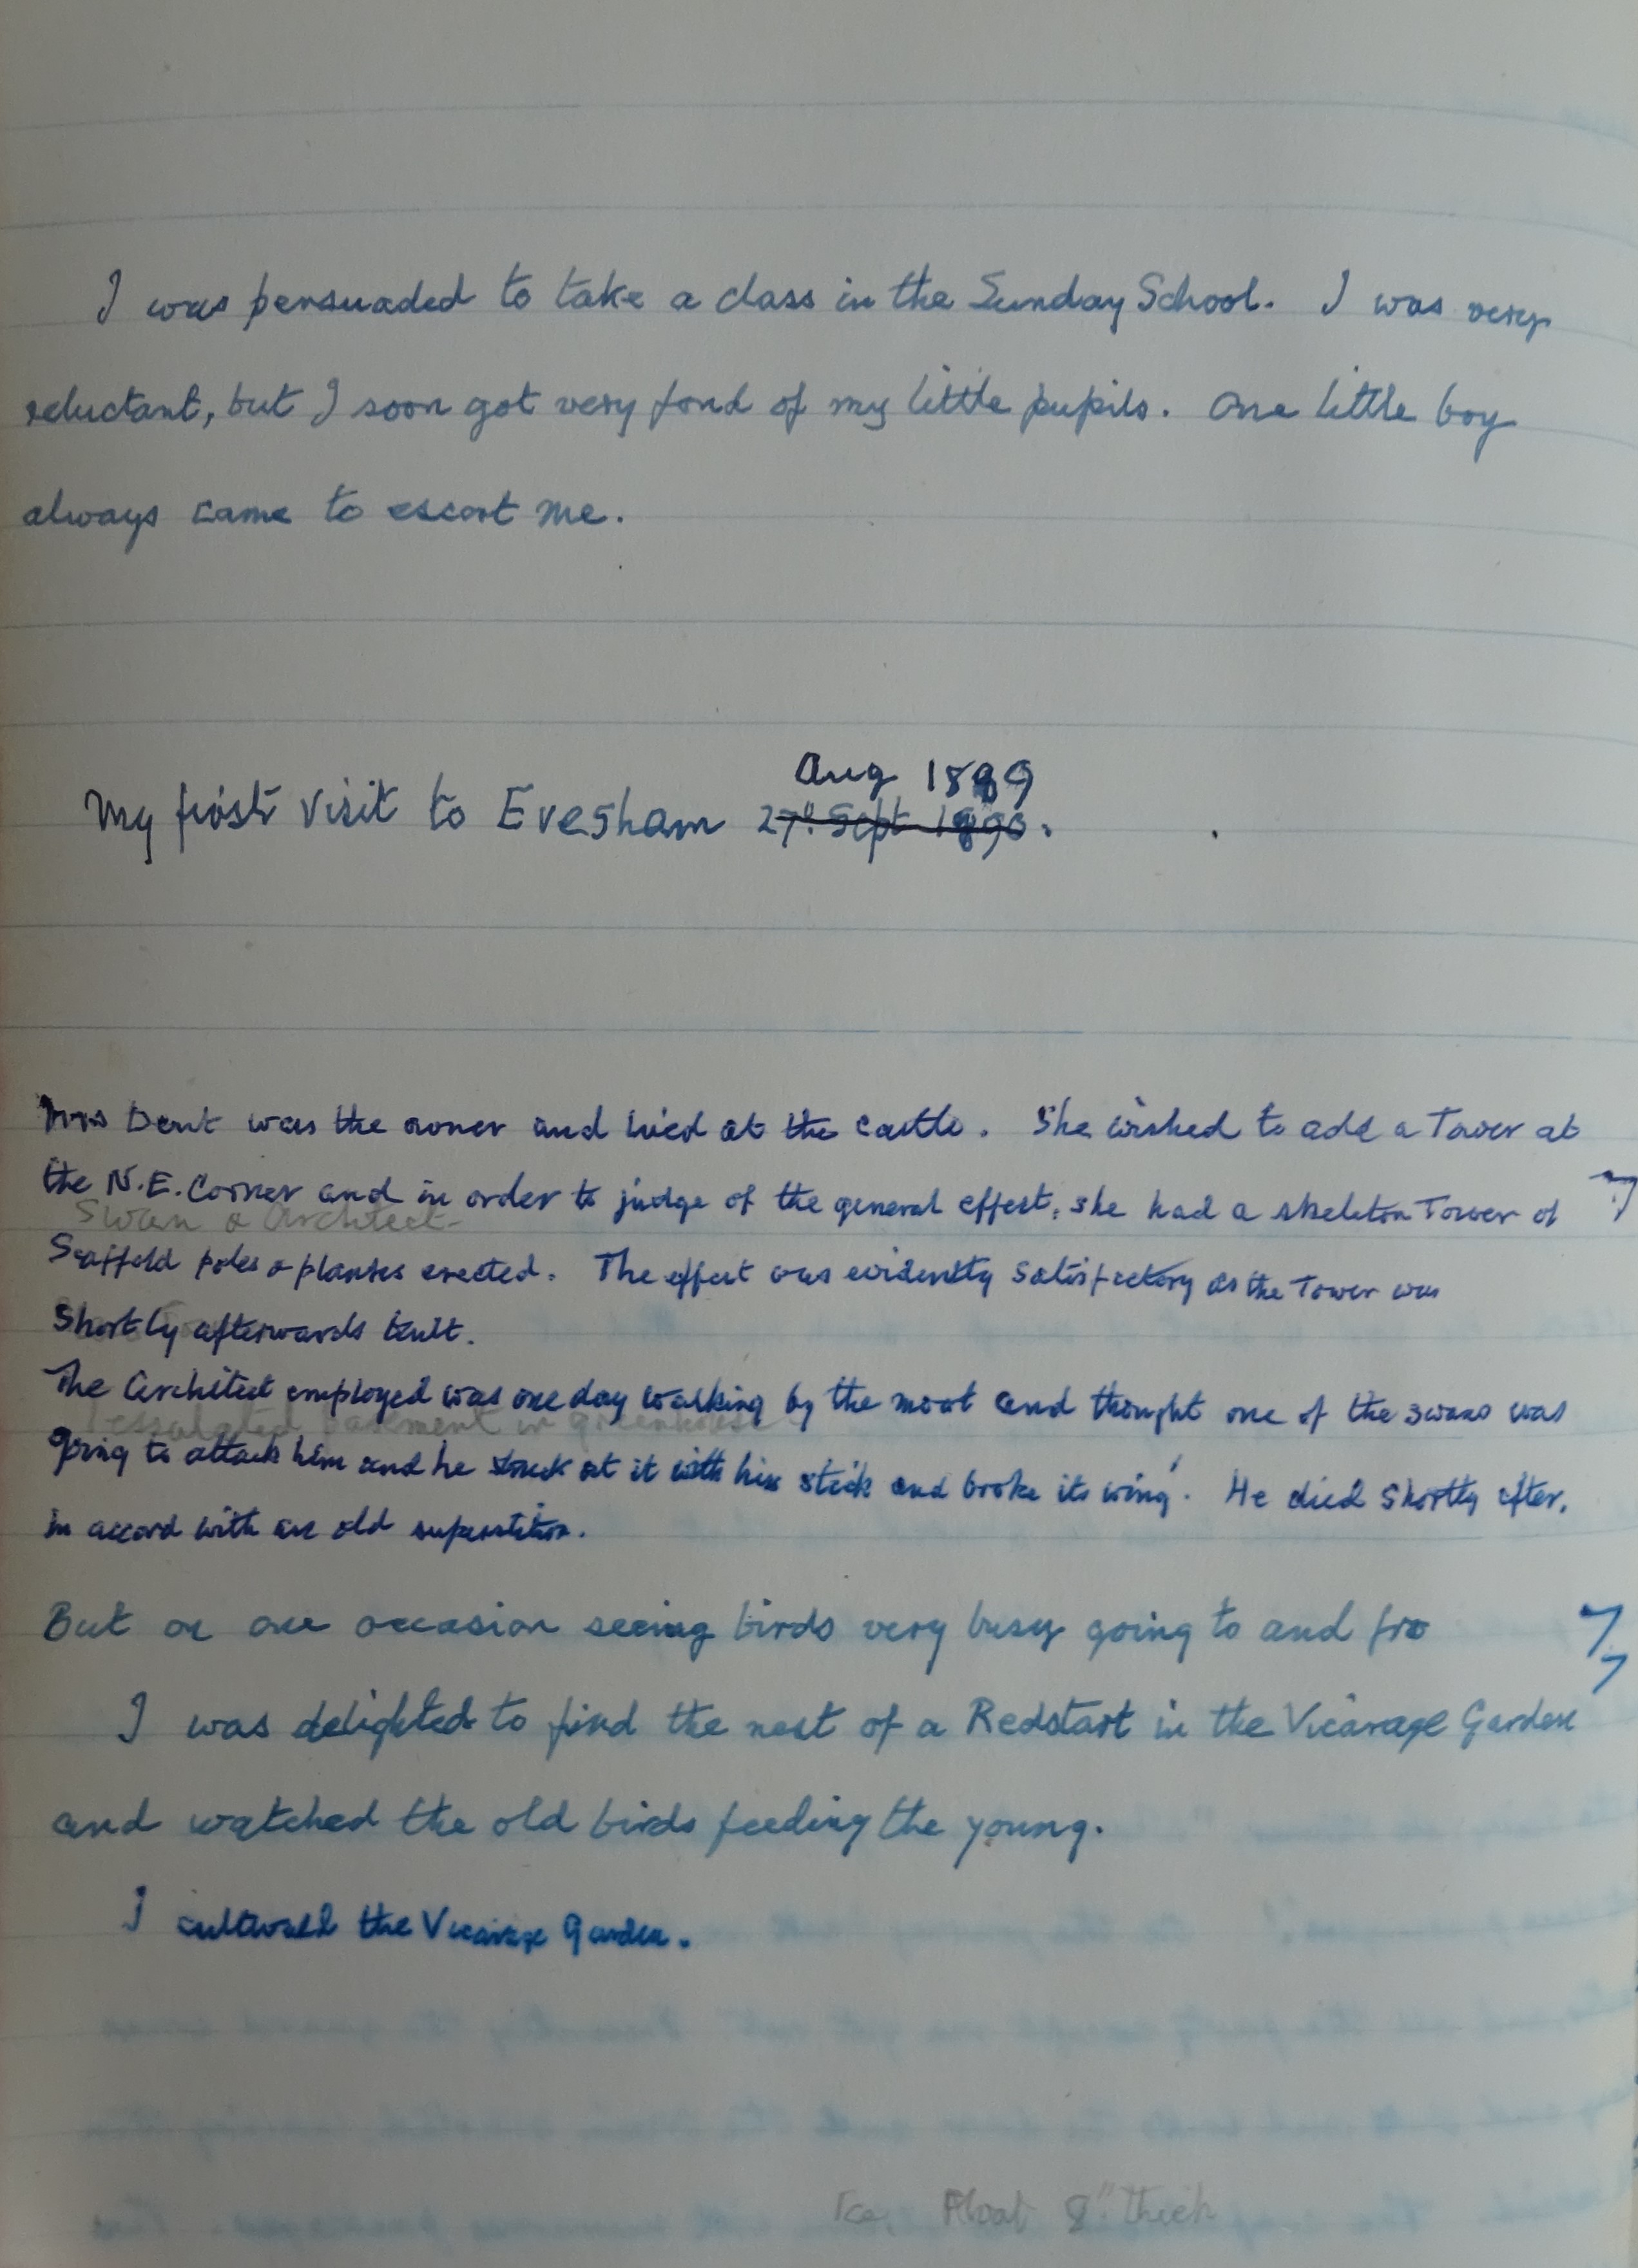 I was persuaded to take a class in the Sunday School. I was very
reluctant, but I soon got very fond of my little pupils. One little boy
always came to escort me.
Aug 1889
My first visit to Evesham 27th Sept 1890.
Mrs Dent was the owner and lived at the castle. She wished to add a Tower at
the N.E. Corner and in order to judge of the general effect, she had a skeleton Tower of
Swan & Architect
Scaffold poles & planks erected. The effect was evidently satisfactory as the Tower was
shortly afterwards built.
The Architect employed was one day walking by the moat and thought one of the swans was
Tessalated basement in greenhouse
going to attack him and he struck at it with his stick and broke its wing! He died shortly after,
in accord with an old superstition.
But on one occasion seeing birds very busy going to and fro
I was delighted to find the nest of a Redstart in the Vicarage Garden
and watched the old birds feeding the young.
I cultivated the Vicarage Garden.
Ice Float 8" thick